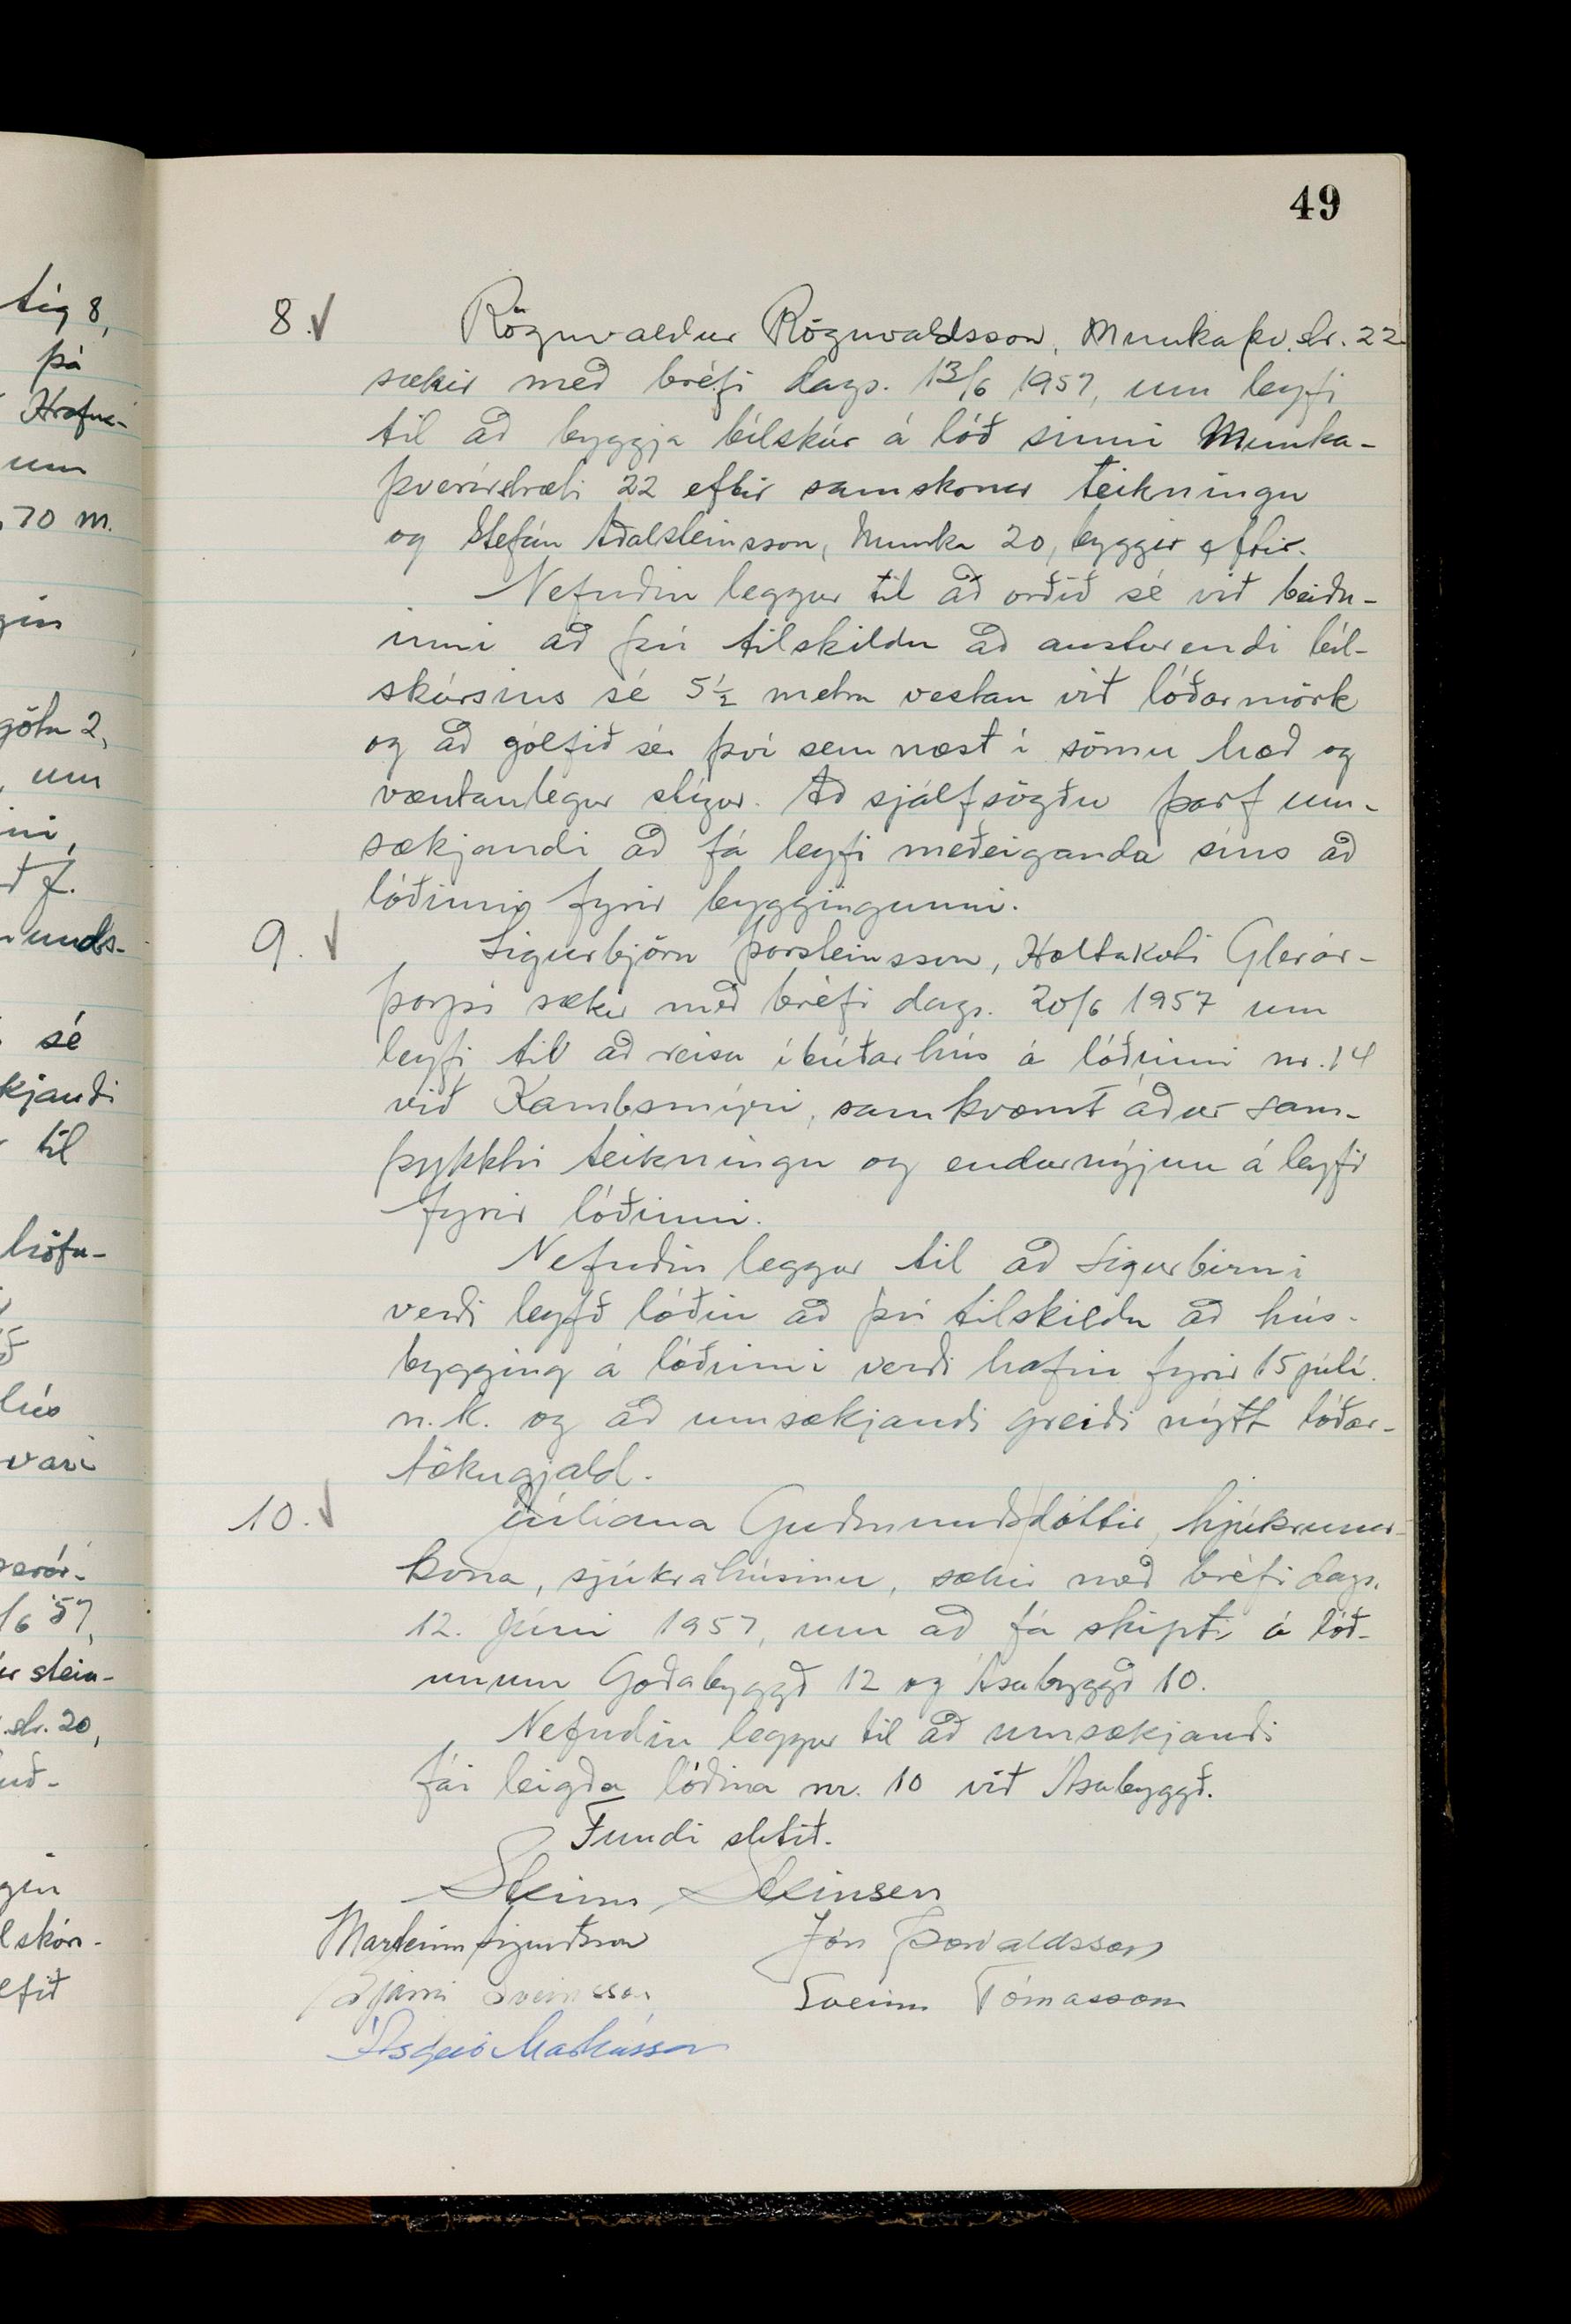 49
8. ✓ Rögnvaldur Rögnvaldsson, Munkaþv.str. 22
sækir með bréfi dags. 13/6 1957, um leyfi
til að byggja bílskúr á lóð sinni Munka-
þverárstræti 22 eftir samskonar teikningu
og Stefán Aðalsteinsson, Munka 20, byggir eftir.
Nefndin leggur til að orðið sé við beiðn-
inni að því tilskildu að austurendi bíl-
skúrsins sé 5½ metra vestan við lóðarmörk
og að gólfið sé því sem næst í sömu hæð og
væntanlegur stígur. Að sjálfsögðu þarf um-
sækjandi að fá leyfi meðeiganda síns að
lóðinni fyrir byggingunni.
9. ✓ Sigurbjörn Þorsteinsson, Holtakoti Glerár-
þorpi sækir með bréfi dags. 20/6 1957 um
leyfi til að reisa íbúðarhús á lóðinni nr. 14
við Kambsmýri, samkvæmt áður sam-
þykktri teikningu og endurnýjun á leyfi
fyrir lóðinni.
Nefndin leggur til að Sigurbirni
verði leyfð lóðin að því tilskildu að hús-
bygging á lóðinni verði hafin fyrir 15 júlí.
n.k. og að umsækjandi greiði nýtt lóðar-
tökugjald.
10. ✓ Júlíana Guðmundsdóttir, hjúkrunar-
kona, sjúkrahúsinu, sækir með bréfi dags.
12. júní 1957, um að fá skipti á lóð-
unum Goðabyggð 12 og Ásabyggð 10.
Nefndin leggur til að umsækjandi
fái leigða lóðina nr. 10 við Ásabyggð.
Fundi slitið.
Steinn Steinsen
Marteinn Sigurðsson Jón Þorvaldsson
Bjarni Sveinsson Sveinn Tómasson
Ásgeir Markússon
tíg 8,
þá
Hrafna-
um
,70 m.
götu 2,
um
inni,
unds-
sé
kjandi
til
höfn-
hús
vari
/6 '57,
stein-
.str. 20,